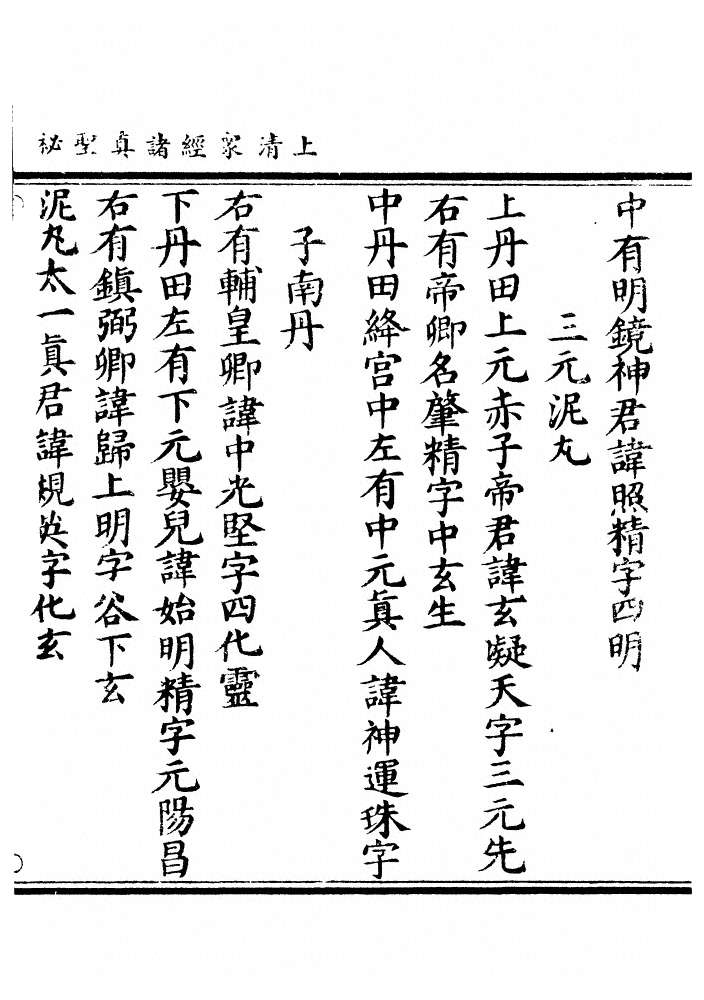 上清衆經諸真聖祕
中有明鏡神君諱照精字四明
三元泥丸
上丹田上元赤子帝君諱玄凝天字三元先
右有帝卿名肇精字中玄生
中丹田絳宫中左有中元眞人諱神運珠字
子南丹
右有輔皇卿諱中光堅字四化靈
下丹田左有下元嬰兒諱始明精字元陽昌
右有鎮弼卿諱歸上明字谷下玄
泥丸太一眞君諱規英字化玄